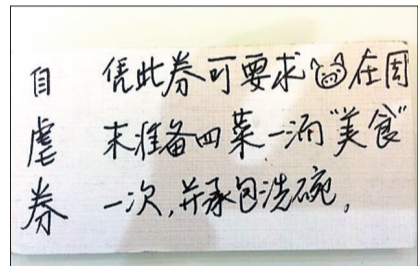 自虐券
凭此券可要求在周
末准备四菜一汤“美食”
一次,并承包洗碗。